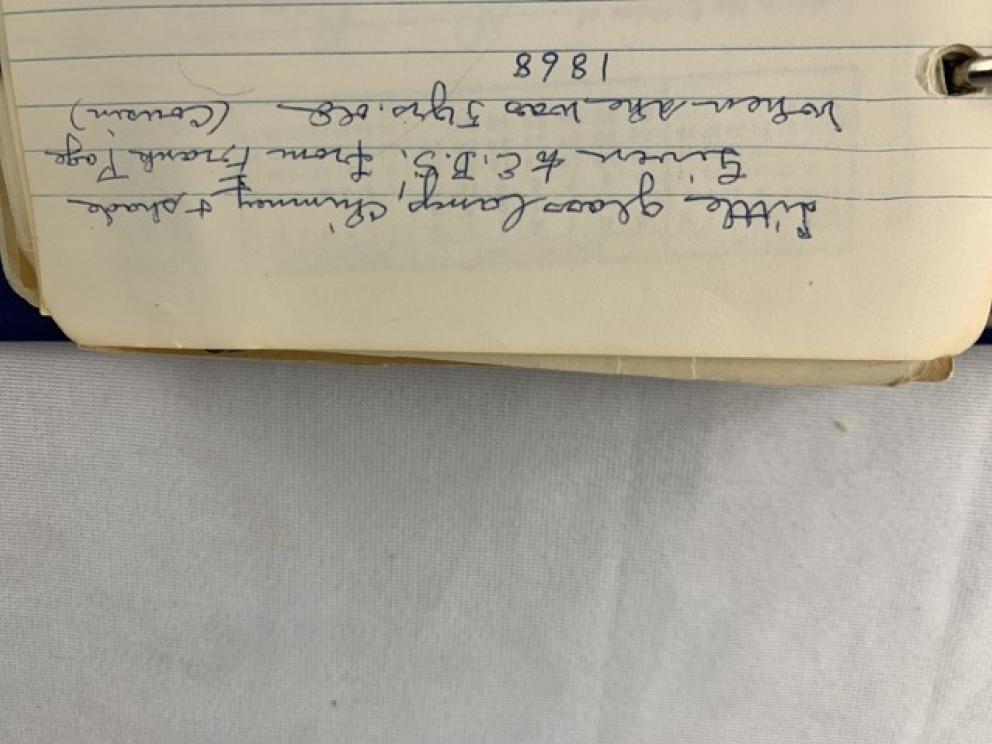 Little glass lamp, chimney & shade
Given to E.B.S. from Frank Page
When she was 5 yrs. old (Cousin)
1868